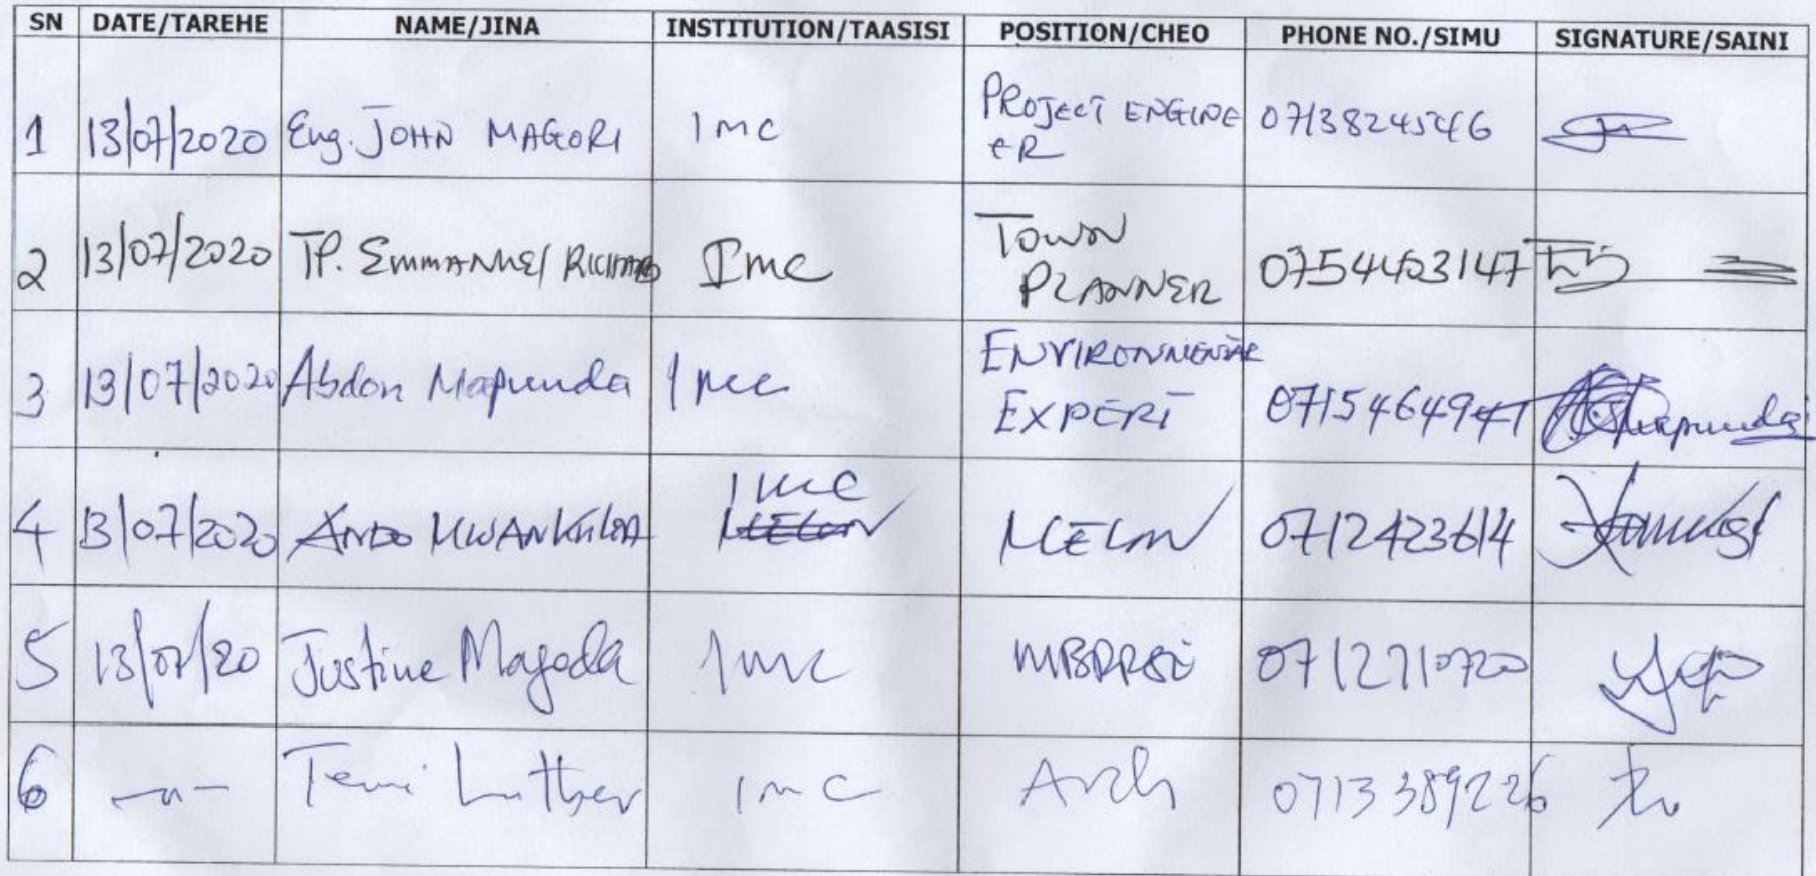 SN DATE/TAREHE NAME/JINA INSTITUTION/TAASISI POSITION/CHEO PHONE NO./SIMU SIGNATURE/SAINI
1 13/07/2020 Eng. JOHN MAGORI IMC PROJECT ENGINE 0713824546
ER
2 13/07/2020 TP. EMMANUEL RICHARD IMC TOWN
PLANNER
3 13/07/2020 Abdon Mapunda IMC ENVIRONMENTAL
EXPERT
IMC
4 13/07/2020 0712423614
5 13/07/20 Justine IMC 0712710720
6 —"— Luther IMC Arch 0713389226